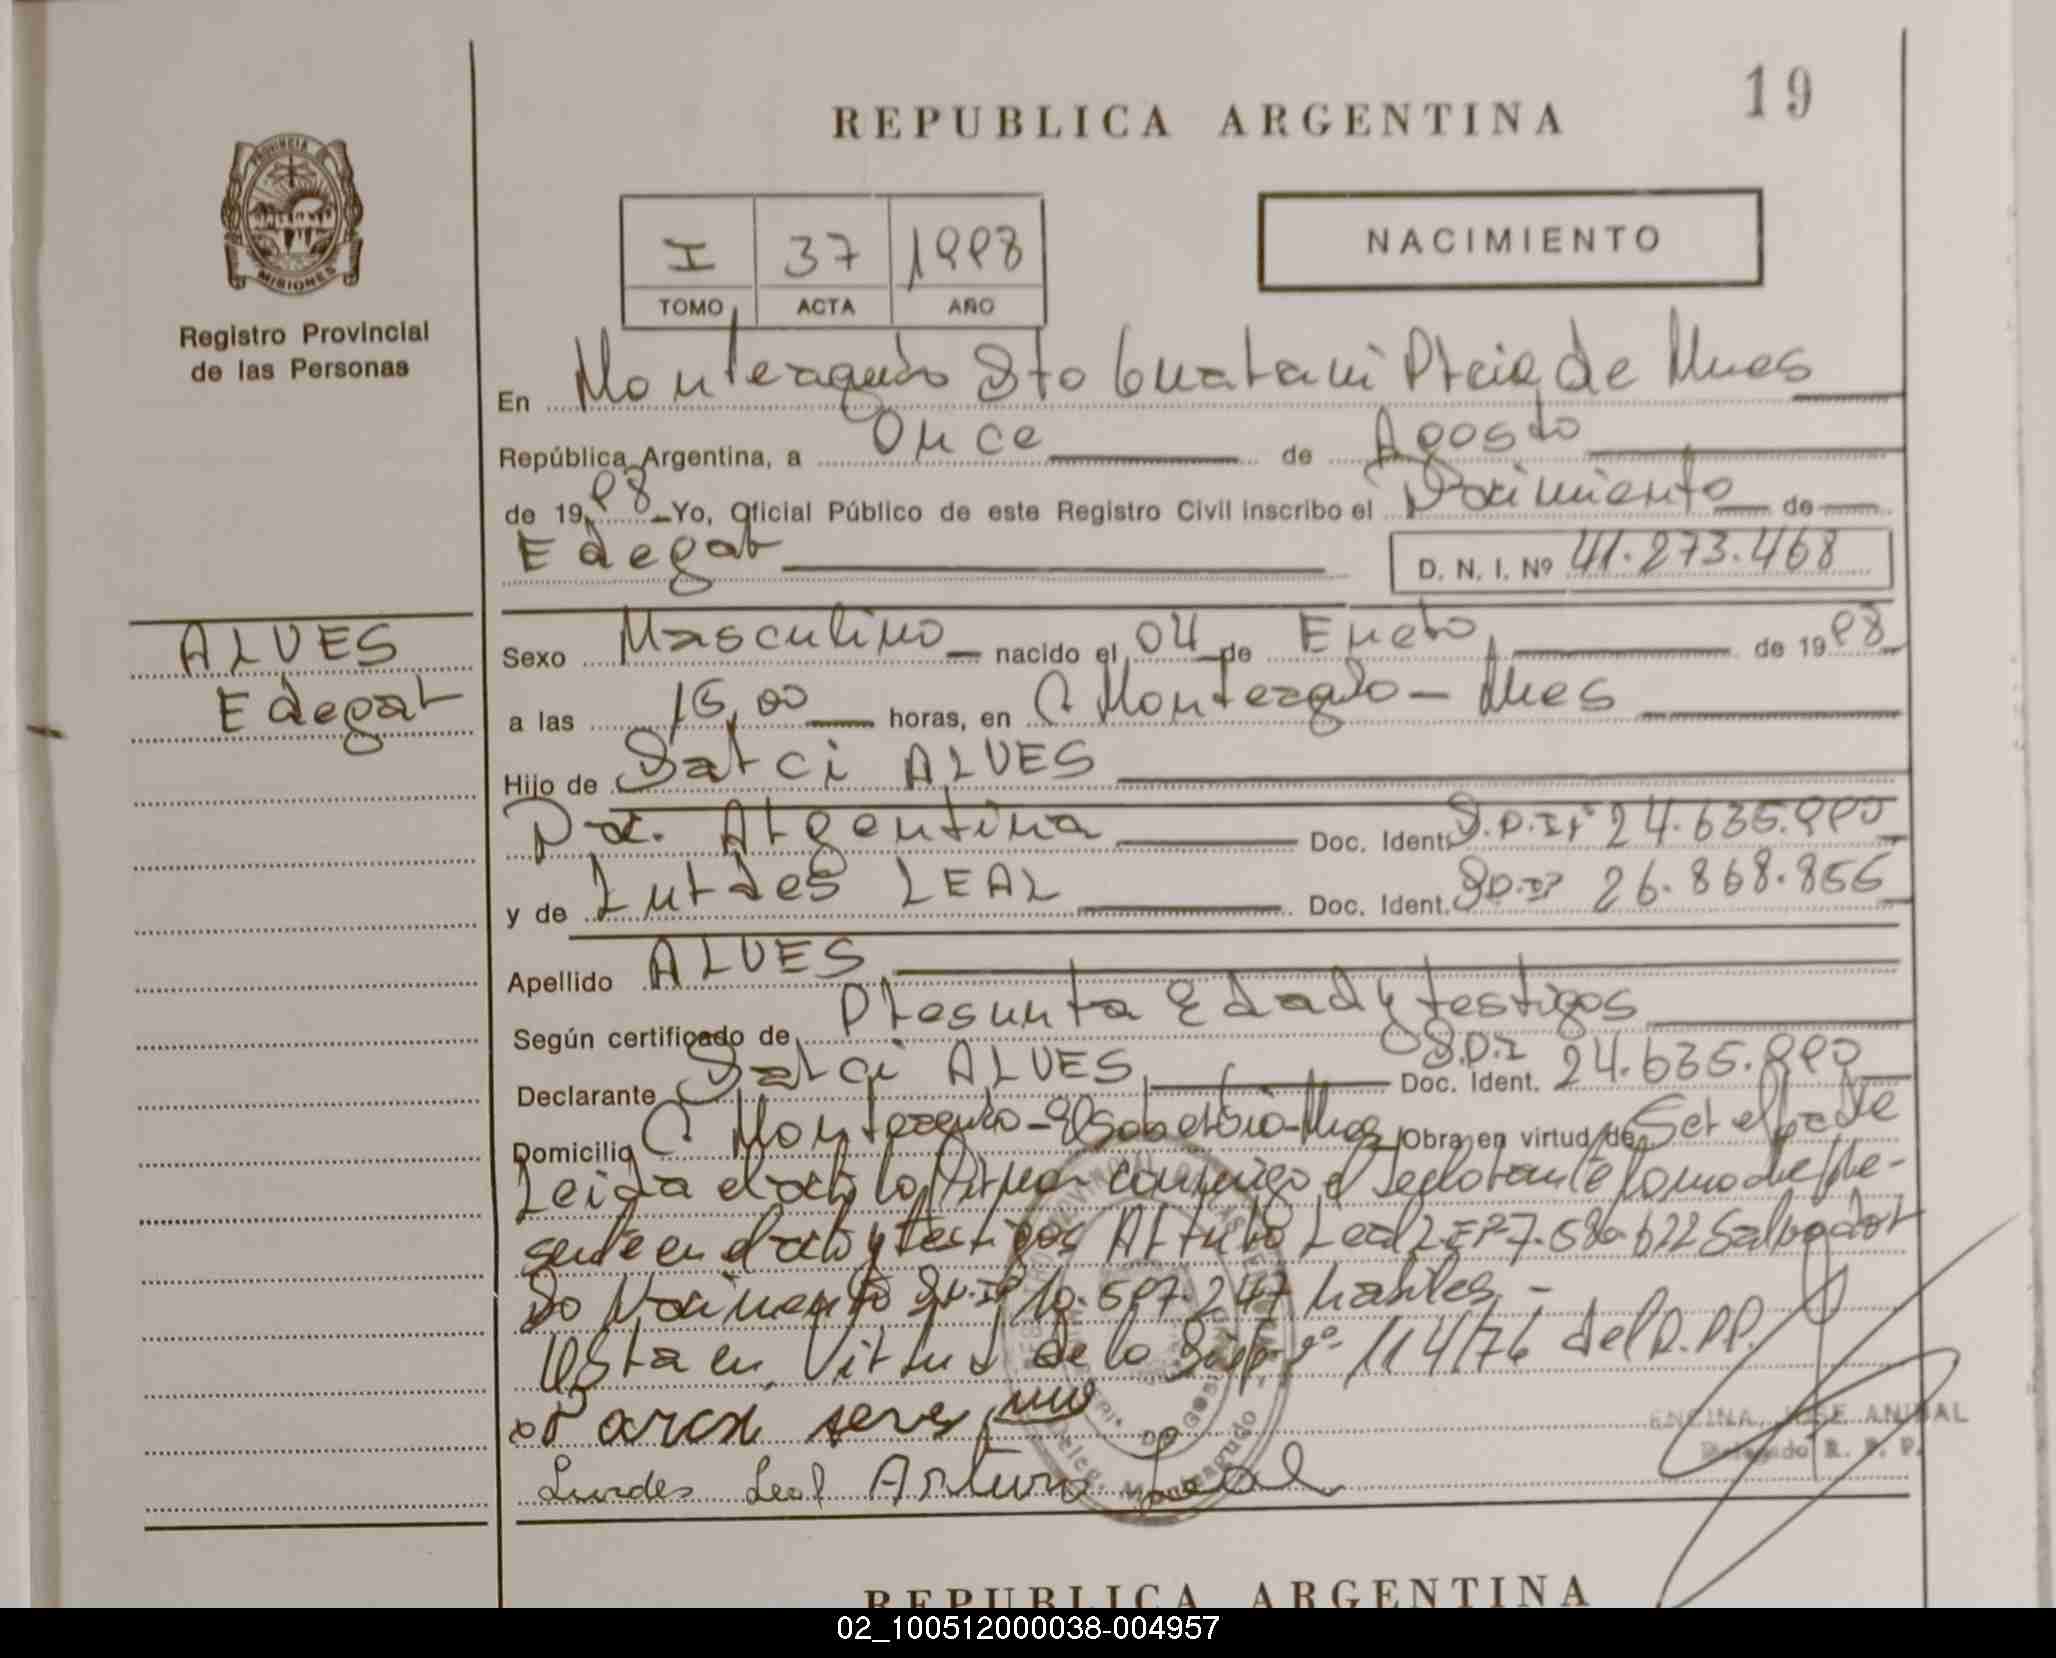 19
REPUBLICA ARGENTINA
PROVINCIA DE
MISIONES
Registro Provincial
de las Personas
I 37 1998
TOMO ACTA AÑO
NACIMIENTO
En Monteagudo Dto Guarani Pcia de Mnes
República Argentina, a Once de Agosto
de 1998 Yo, Oficial Público de este Registro Civil inscribo el Nacimiento de
Edegar
D. N. I. Nº 41.273.468
ALVES
Edegar
Sexo Masculino nacido el 04 de Enero de 1998
a las 15,00 horas, en C Monteagudo - Mnes
Hijo de Darci ALVES
Nac. Argentina Doc. Ident. D.N.I. 24.635.990
y de Lurdes LEAL Doc. Ident. D.N.I 26.868.855
Apellido ALVES
Según certificado de Presunta Edad y testigos
Declarante Darci ALVES Doc. Ident. D.N.I 24.635.990
Domicilio C Monteagudo - El Soberbio - Mnes Obra en virtud de Ser el padre
Leida el acta la firman conmigo el declarante la madre pre-
sente en el acto y testigos Arturo Leal L.E 7.580.622 Salvador
Do Nacimento D.N.I 10.597.247 habiles -
Esta en Virtud de la Disp. nº 114/76 del R.P.P.
Lurdes Leal Arturo Leal
ENCINA, JOSE ANIBAL
Delegado R. P. P.
Deleg. Monteagudo
REPUBLICA ARGENTINA
02_100512000038-004957